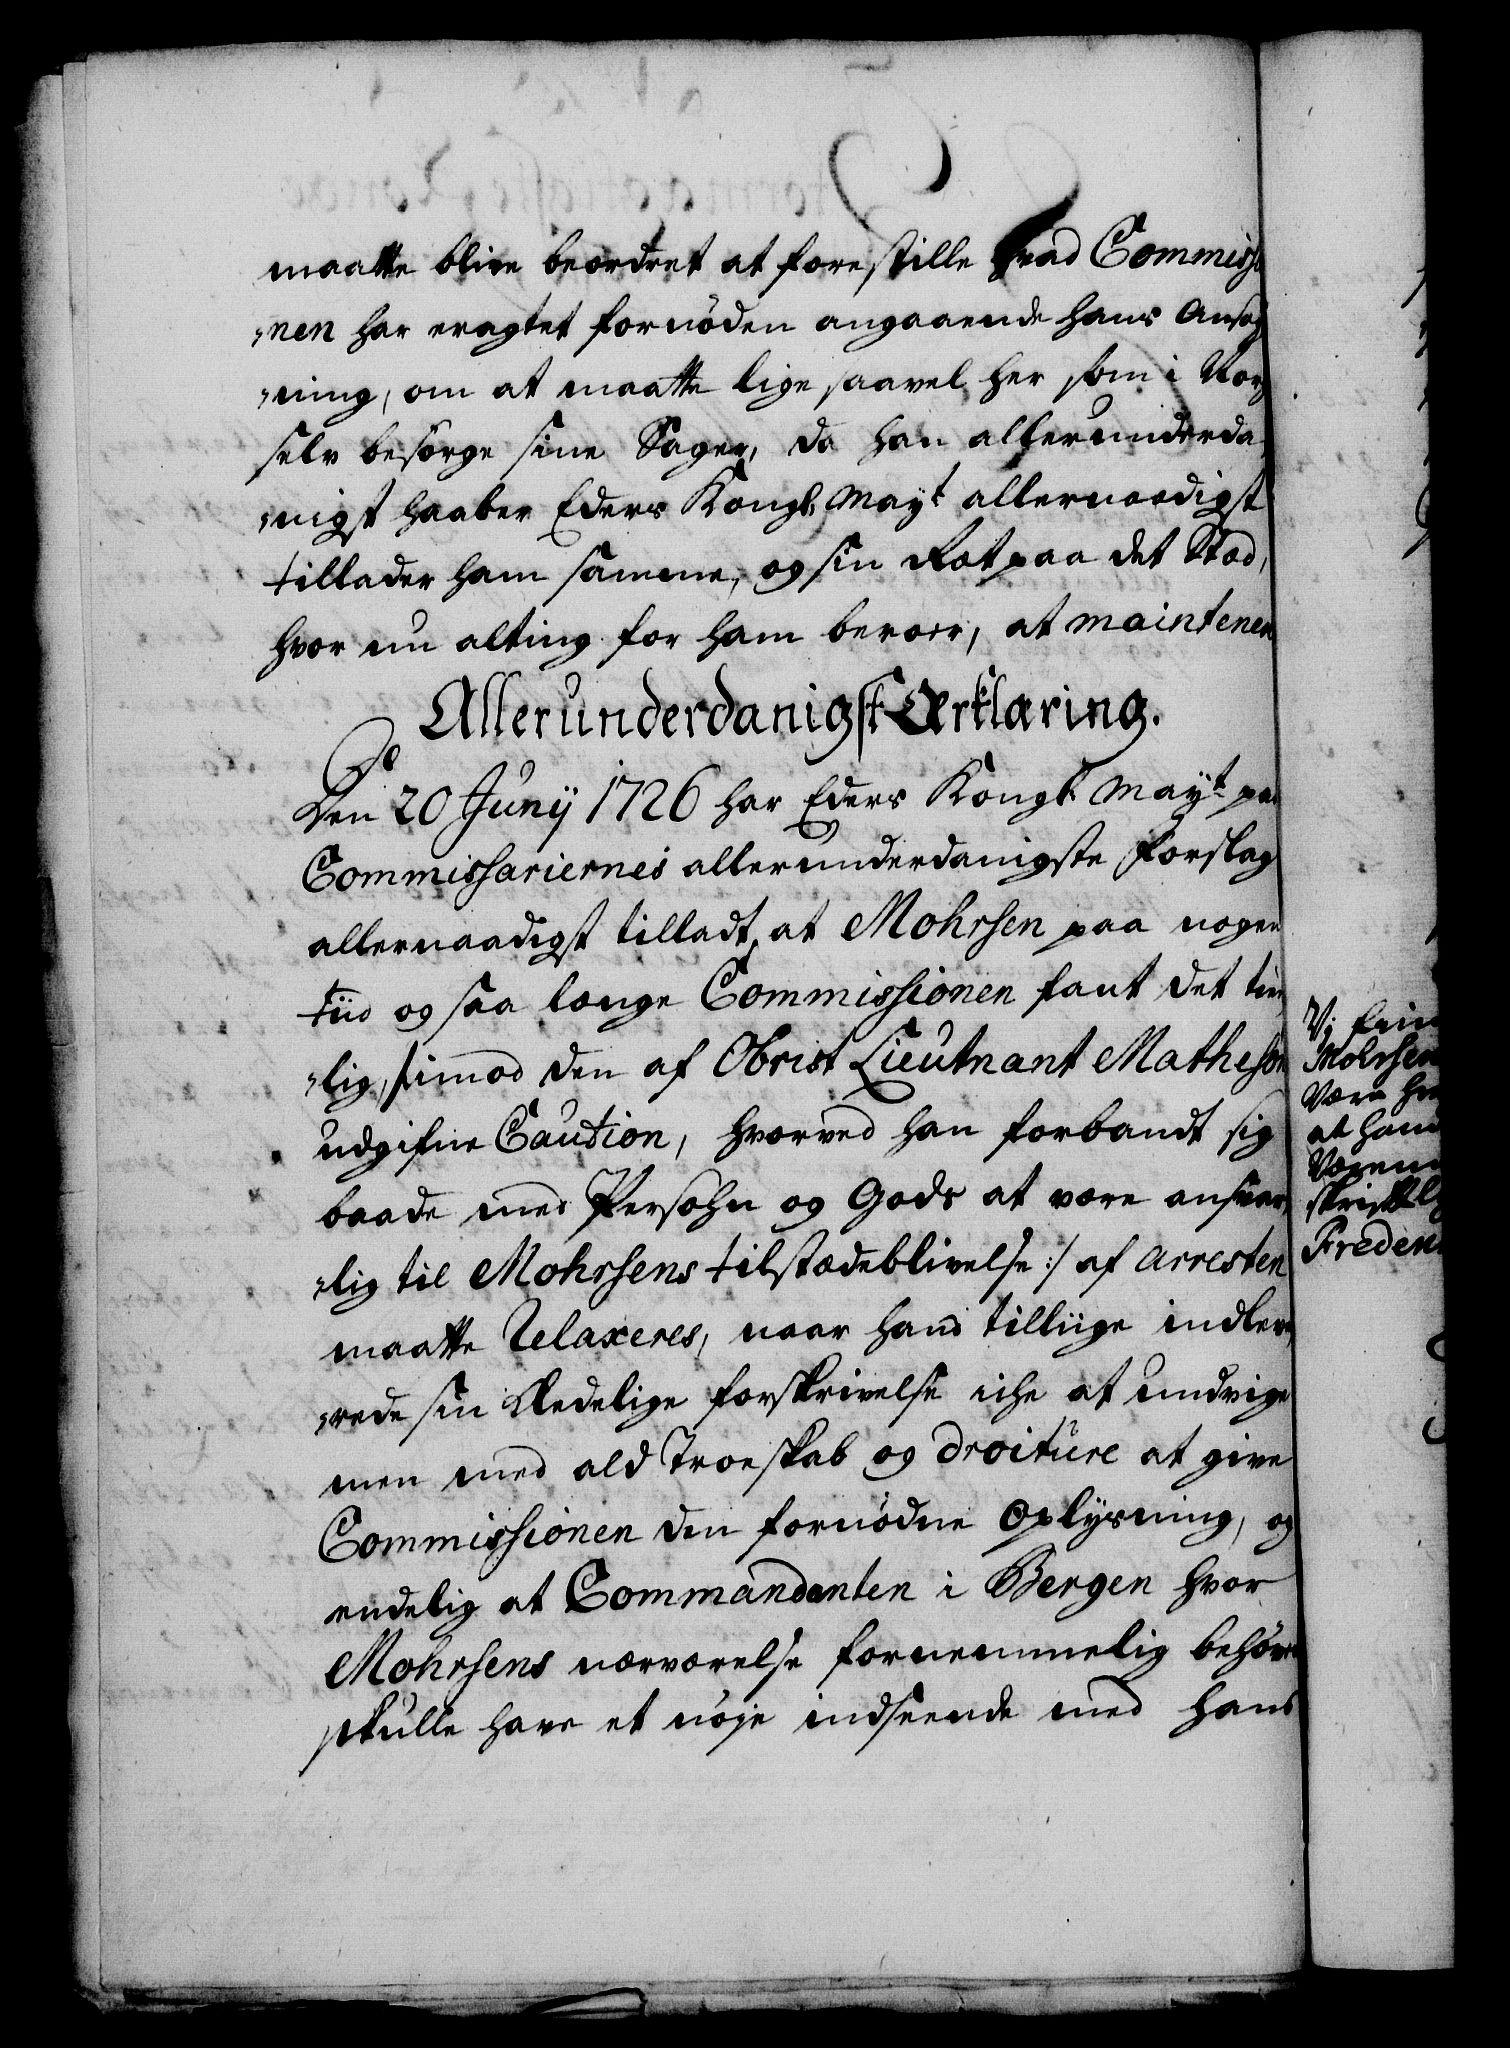 maatte blive beordret at forestille hvad Commissio
„nen har eragtet fornöden angaaende hans Ansøg
„ning, om at maatte lige saavel her som i Norge
selv besörge sine Sager, da han allerunderda
„nigst haaber Eders Kongl. Mayt allernaadigst
tillader ham samme, og sin Ret paa det Stæd,
hvor nu alting for ham beroer, at maintenere
Allerunderdanigst Erklæring.
Den 20 Junij 1726 har Eders Kongl. Mayt. paa
Commissariernes allerunderdanigste Forslag
allernaadigst tilladt, at Mohrsen paa nogen
tiid og saa længe Commissionen fant det tien
„lig, /: imod den af Obrist Lieutnant Matheson
udgifne Caution, hvorved han forbandt sig
baade med Persohn og Gods at være ansvar
„lig til Mohrsens tilstædeblivelse :/ af Arresten
maatte Relaxeres, naar hand tilliige indleve
„rede sin Eedelige forskrivelse iche at undvige
men med ald Troeskab og droiture at give
Commissionen den fornödne Oplysning, og
endelig at Commandanten i Bergen hvor
Mohrsens nærværelse fornemmelig behöves
skulle have et nöje indseende med hans
Vi fin
Mohrsen
Være
at hand
skriftlig
Frederi